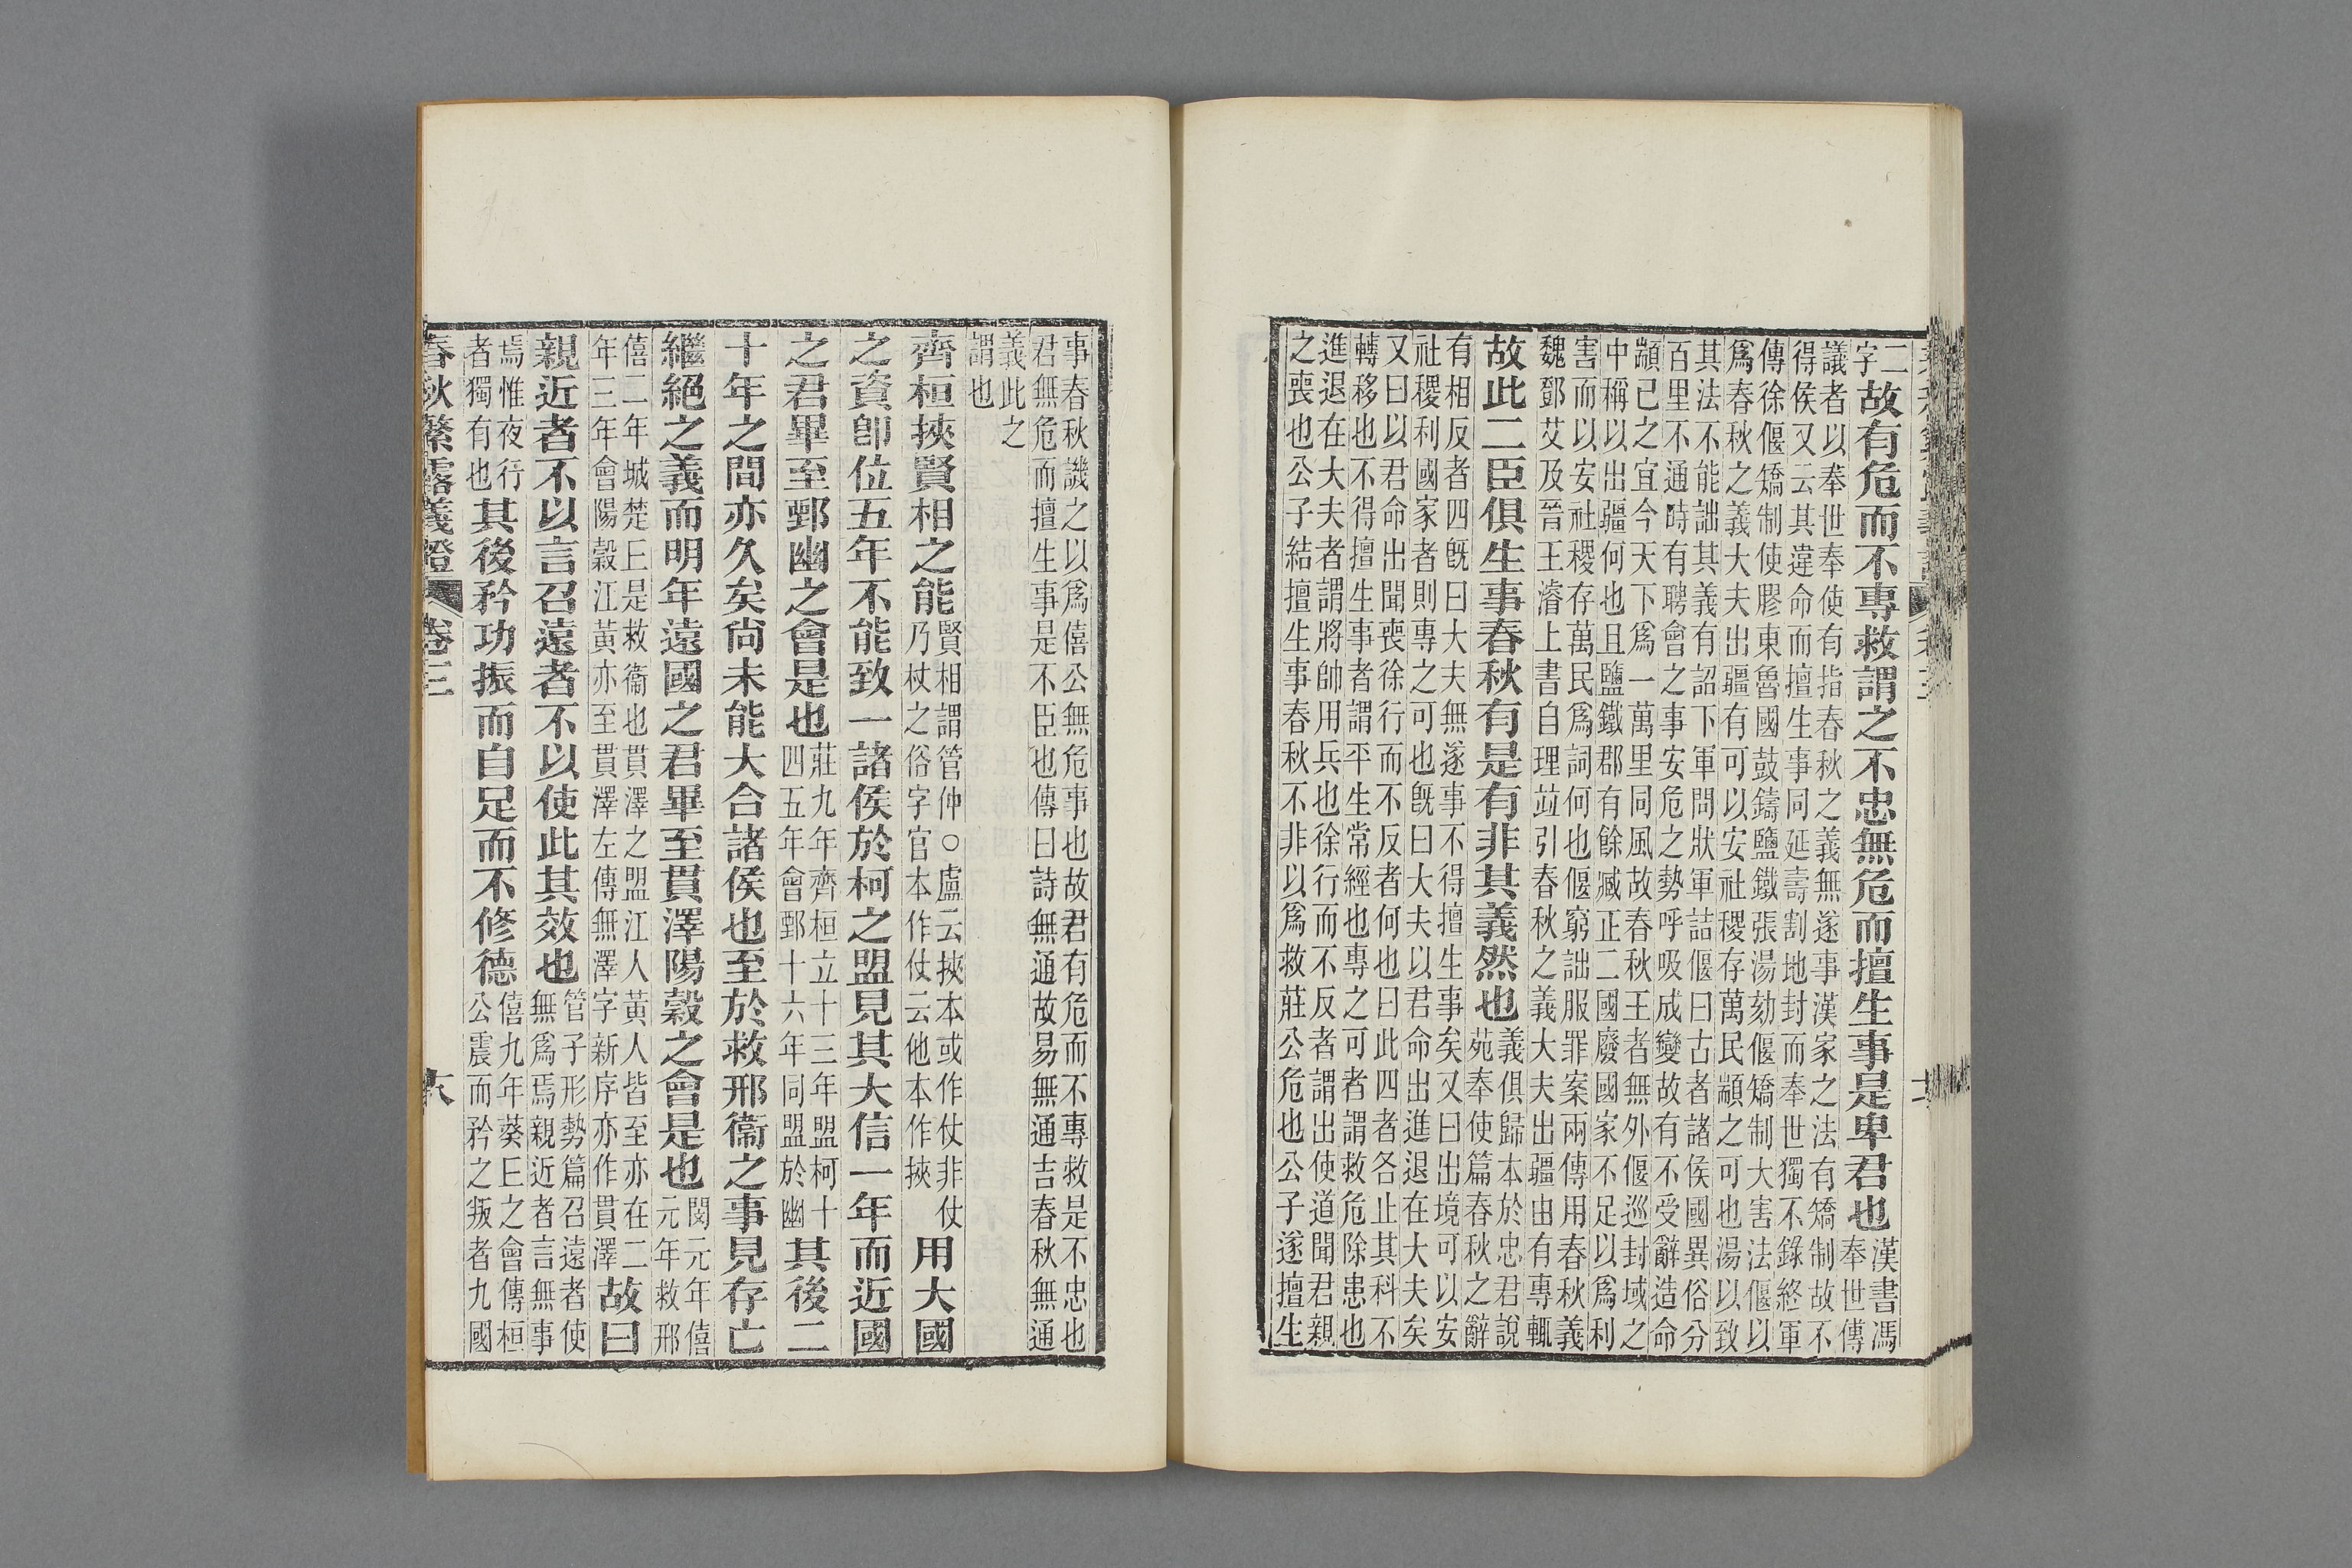 二
字
故有危而不專救謂之不忠無危而擅生事是卑君也
漢書馮
奉世傳
議者以奉世奉使有指春秋之義無遂事漢家之法有矯制故不
得侯又云其違命而擅生事同延壽割地封而奉世獨不錄終軍
傳徐偃矯制使膠東魯國鼓鑄鹽鐵張湯劾偃矯制大害法偃以
爲春秋之義大夫出疆有可以安社稷存萬民顓之可也湯以致
其法不能詘其義有詔下軍問狀軍詰偃曰古者諸侯國異俗分
百里不通時有聘會之事安危之勢呼吸成變故有不受辭造命
顓已之宜今天下爲一萬里同風故春秋王者無外偃巡封域之
中稱以出疆何也且鹽鐵郡有餘臧正二國廢國家不足以爲利
害而以安社稷存萬民爲詞何也偃窮詘服罪案兩傳用春秋義
魏鄧艾及晉王濬上書自理竝引春秋之義大夫出疆由有專輒
故此二臣俱生事春秋有是有非其義然也
義俱歸本於忠君說
苑奉使篇春秋之辭
有相反者四旣曰大夫無遂事不得擅生事矣又曰出境可以安
社稷利國家者則專之可也旣曰大夫以君命出進退在大夫矣
又曰以君命出聞喪徐行而不反者何也曰此四者各止其科不
轉移也不得擅生事者謂平生常經也專之可者謂救危除患也
進退在大夫者謂將帥用兵也徐行而不反者謂出使道聞君親
之喪也公子結擅生事春秋不非以爲救莊公危也公子遂擅生
事春秋譏之以爲僖公無危事也故君有危而不專救是不忠也
君無危而擅生事是不臣也傳曰詩無通故易無通吉春秋無通
義此之
謂也
齊桓挾賢相之能
賢相謂管仲○盧云挾本或作仗非仗
乃杖之俗字官本作仗云他本作挾
用大國
之資卽位五年不能致一諸侯於柯之盟見其大信一年而近國
之君畢至鄄幽之會是也
莊九年齊桓立十三年盟柯十
四五年會鄄十六年同盟於幽
其後二
十年之間亦久矣尙未能大合諸侯也至於救邢衞之事見存亡
繼絕之義而明年遠國之君畢至貫澤陽穀之會是也
閔元年僖
元年救邢
僖二年城楚王是救衞也貫澤之盟江人黃人皆至亦在二
年三年會陽穀江黃亦至貫澤左傳無澤字新序亦作貫澤
故曰
親近者不以言召遠者不以使此其效也
管子形勢篇召遠者使
無爲焉親近者言無事
焉惟夜行
者獨有也
其後矜功振而自足而不修德
僖九年葵王之會傳桓
公震而矜之叛者九國
春秋繁露義證 卷三 六